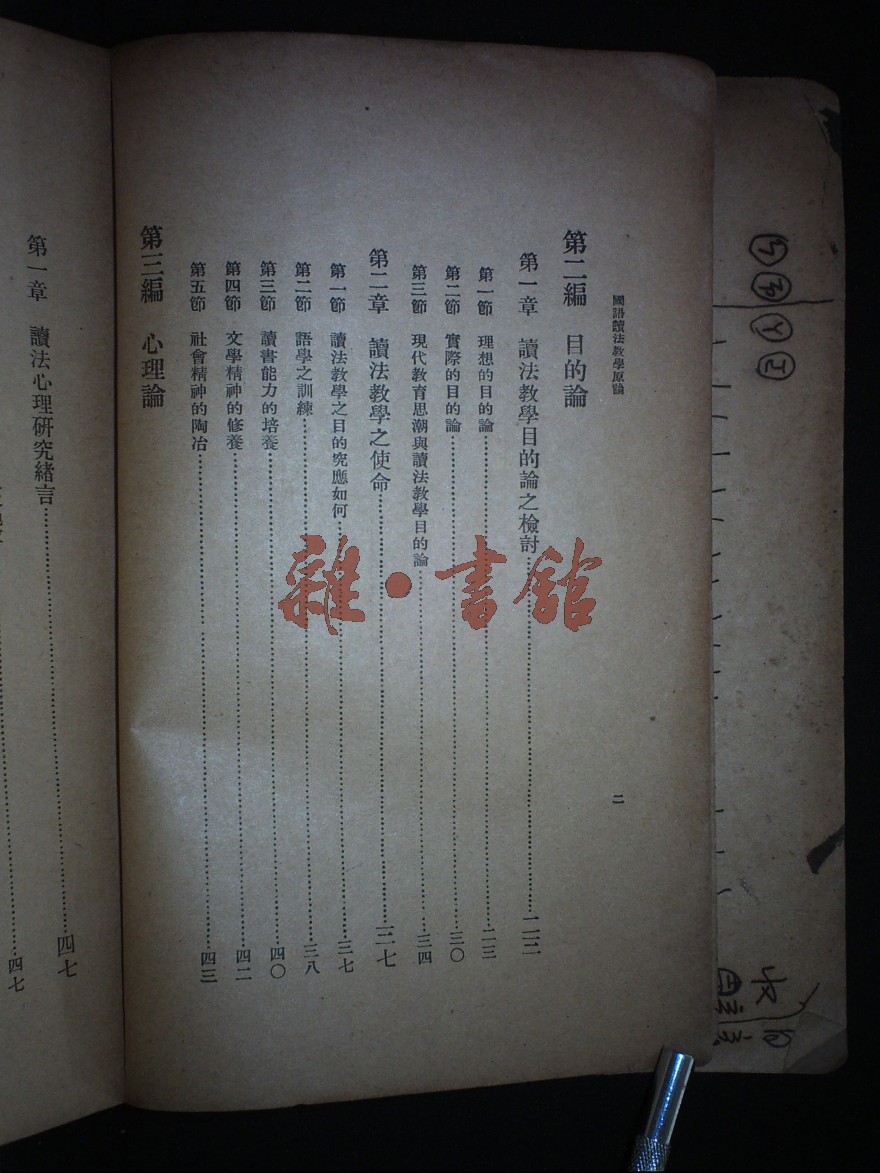 國語讀法教學原論 二
第二編 目的論
第一章 讀法教學目的論之檢討……二三
第一節 理想的目的論……二三
第二節 實際的目的論……三〇
第三節 現代教育思潮與讀法教學目的論……三四
第二章 讀法教學之使命……三七
第一節 讀法教學之目的究應如何……三七
第二節 語學之訓練……三八
第三節 讀書能力的培養……四〇
第四節 文學精神的修養……四二
第五節 社會精神的陶冶……四三
第三編 心理論
第一章 讀法心理研究緒言……四七
……四七
雜·書館